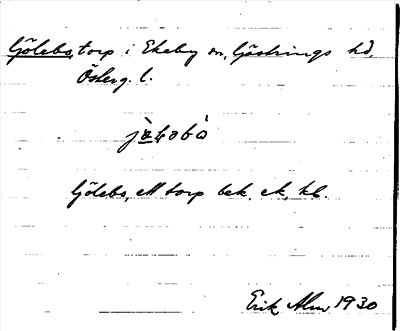 Gölebo, torp i Ekeby sn, Göstrings hd,
Österg. l.
Gölebo, ett torp bek. ek. kbl.
Erik Alm, 1930